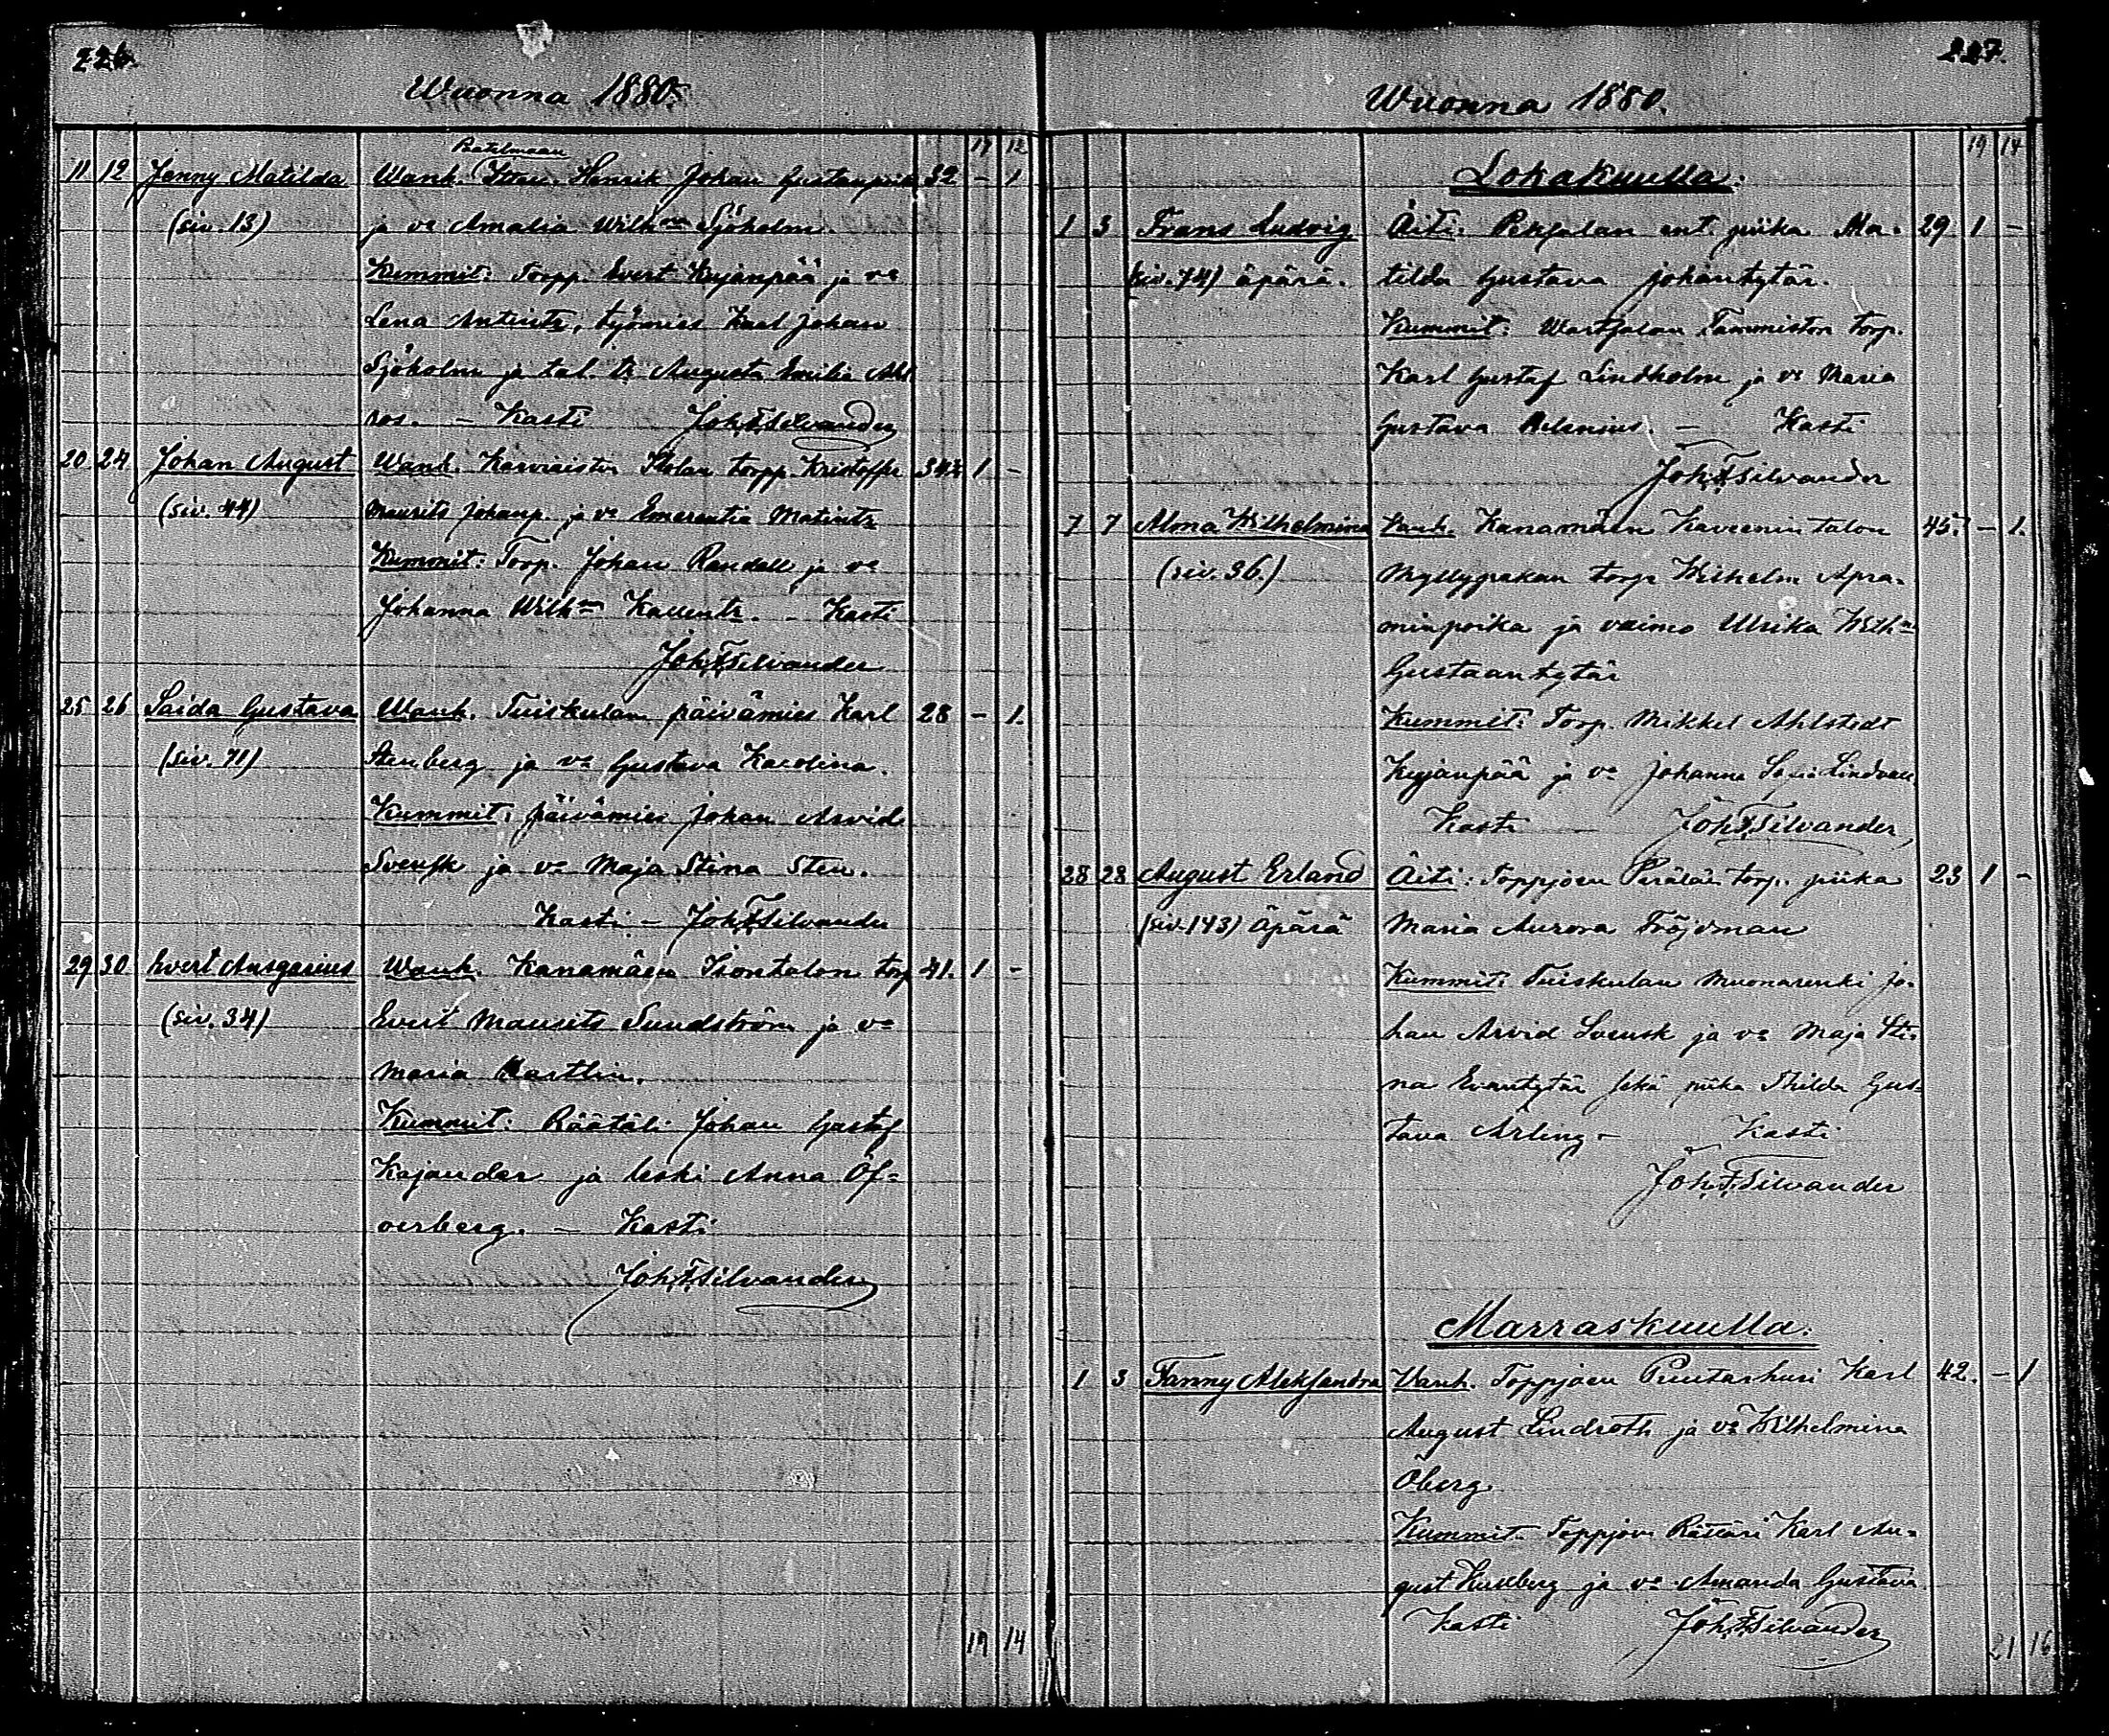 226.
Wuonna 1880.
17 12
Raatelmaan
11 12 Jenny Matilda Wanh. Henrik Johan Gustanpoika 32 - 1
(siv. 13) ja vo Amalia Wilhna Sjöholm.
Kummit: Torpp. Evert Kujanpää ja vo
Lena Antintr, työmies Karl Johan
Sjöholm ja tal. tr Augusta Emilia Ahl
ros. - Kasti Joh. F. Silvander
20 24 Johan August Wanh. torpp. Kristoffer 34½ 1 -
(siv. 44) Maurits Johanp. ja vo Emerentia Matintr
Kummit: Torp. Johan Randall ja vo
Johanna Wilhna - Kasti
Joh. F. Silvander
25 26 Saida Gustava Wanh. Tuiskulan päivämies Karl 28 - 1.
(siv. 71) Stenberg ja vo Gustava Karolina.
Kummit: päivämies Johan Arvid
Svensk ja vo Maja Stina Sten.
Kasti - Joh. F. Silvander
29 30 Evert Ansgarius Wanh. Kanamäen Isontalon torp 41. 1 -
(siv. 34) Evert Maurits Sundström ja vo
Maria Martlin.
Kummit: Räätäli Johan Gustaf
Kajander ja leski Anna Öf=
verberg. - Kasti
Joh. F. Silvander
19 14
227.
Wuonna 1880.
19 14
Lokakuulla.
1 3 Frans Ludvig Äiti: Pekjalan ent. piika Ma- 29 1 -
(siv. 74) äpärä. tilda Gustava Johantytär.
Kummit: Wartsalan Tammiston torp.
Karl Gustaf Lindholm ja vo Maria
Gustava Relenius. - Kasti
Joh. F. Silvander
7 7 Alma Wilhelmina Wanh. Kanamäen Kaveenin talon 45. - 1.
(siv. 36.) Myllypakan torp. Wilhelm Apra-
minpoika ja vaimo Ulrika Wilhna
Gustaantytär
Kummit: Torp. Mikkel Ahlstedt
Kujanpää ja vo Johanna Sofia
Kasti Joh. F. Silvander
28 28 August Erland Äiti: Toppjoen Perälän torp. piika 23 1 -
(siv. 143) Äpärä Maria Aurora Fröjdman
Kummit: Tuiskulan muonarenki Jo-
han Arvid Svensk ja vo Maja Sti-
na Evantytär sekä piika Thilda Gus-
tava Arling - Kasti
Joh. F. Silvander
Marraskuulla.
1 3 Fanny Aleksandra Wanh. Toppjoen Puutarhuri Karl 42. - 1
August Lindroth ja vo Wilhelmina
Öberg.
Kummit. Toppjoen Rättäri Karl Au-
gust ja vo Amanda Gustava.
Kasti Joh. F. Silvander
21 16